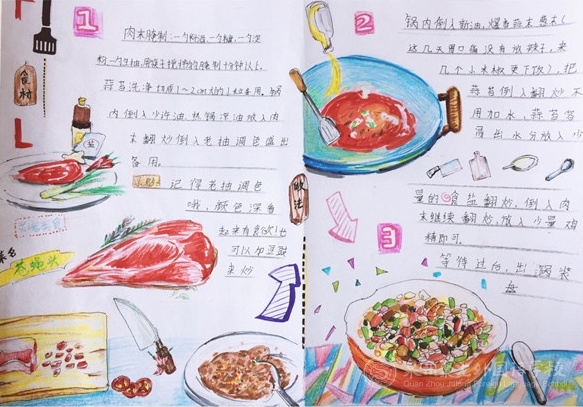 1
肉末腌制:一勺料酒,一勺糖,一勺淀
粉一勺生抽,用筷子搅拌均腌制10钟以上.
蒜苔洗净切成1~2cm的小粒备用,锅
内倒入少许油,热锅凉油放入肉
末翻炒倒入老抽调色盛出
备用。
记得老抽调色
哦,颜色深看
起来有食欲!也
可以加豆豉
来炒
食材
做法
2
锅内倒入新油,爆香蒜末葱末(
这几天胃口痛没有放辣子,来
几个小米椒更下饭),把
蒜苔倒入翻炒不
用加水,蒜苔蒜
昂出水分放入小
量的食盐翻炒,倒入肉
末继续翻炒,馆入少量鸡
精即可。
3
等待过后,出锅装
盘
Quan Zhou